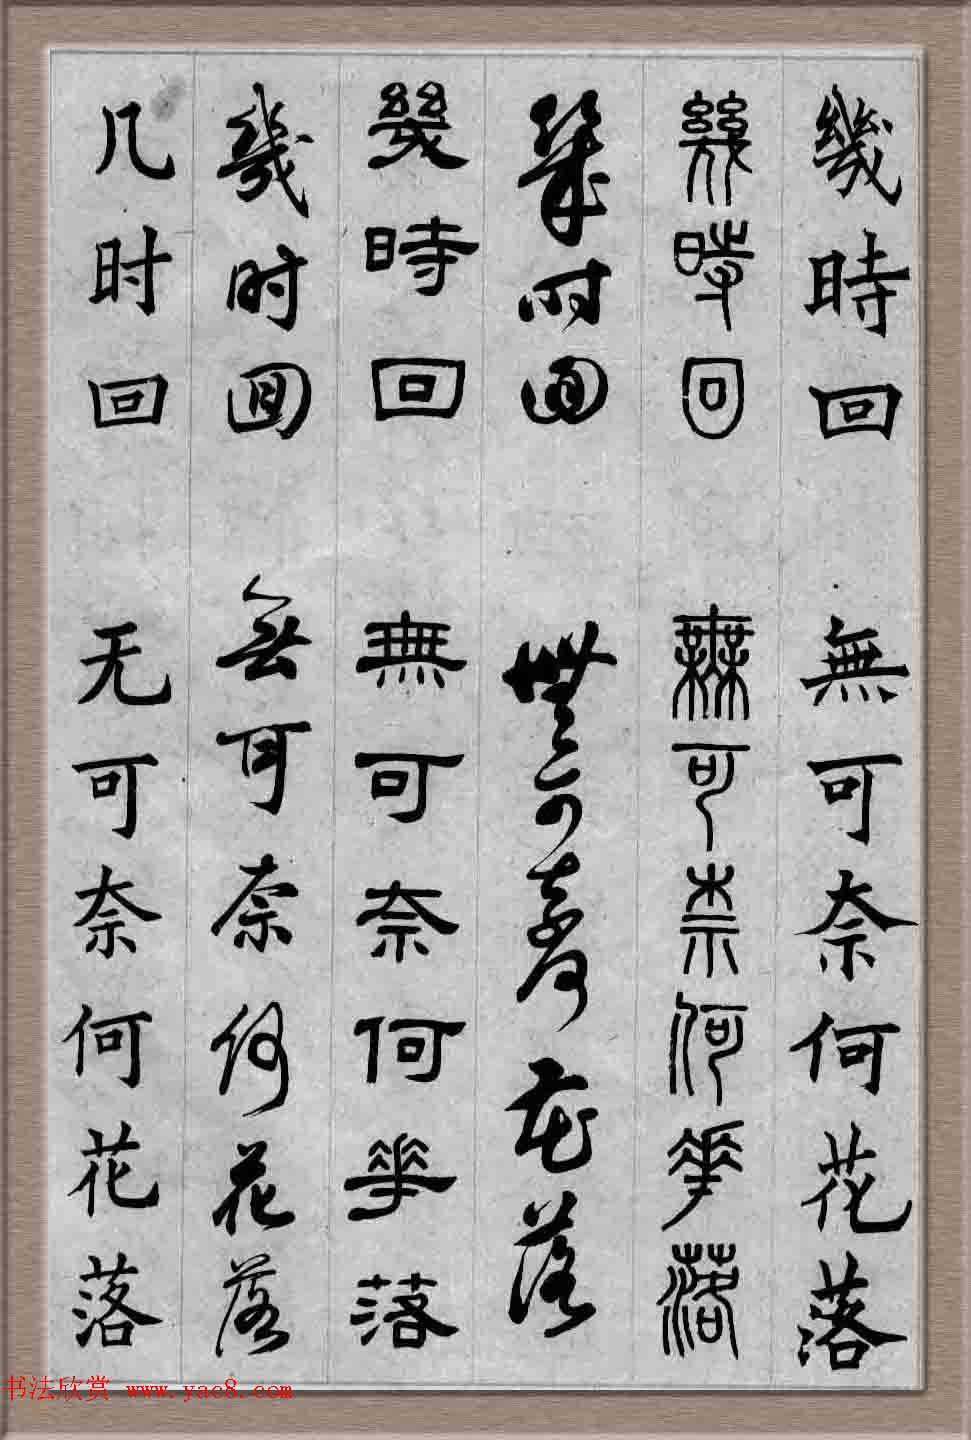 幾時回 無可奈何花落
幾時回 無可柰何華落
幾時回 無可奈何花落
幾時回 無可奈何華落
幾时回 無可奈何花落
几时回 无可奈何花落
书法欣赏 www.yac8.com